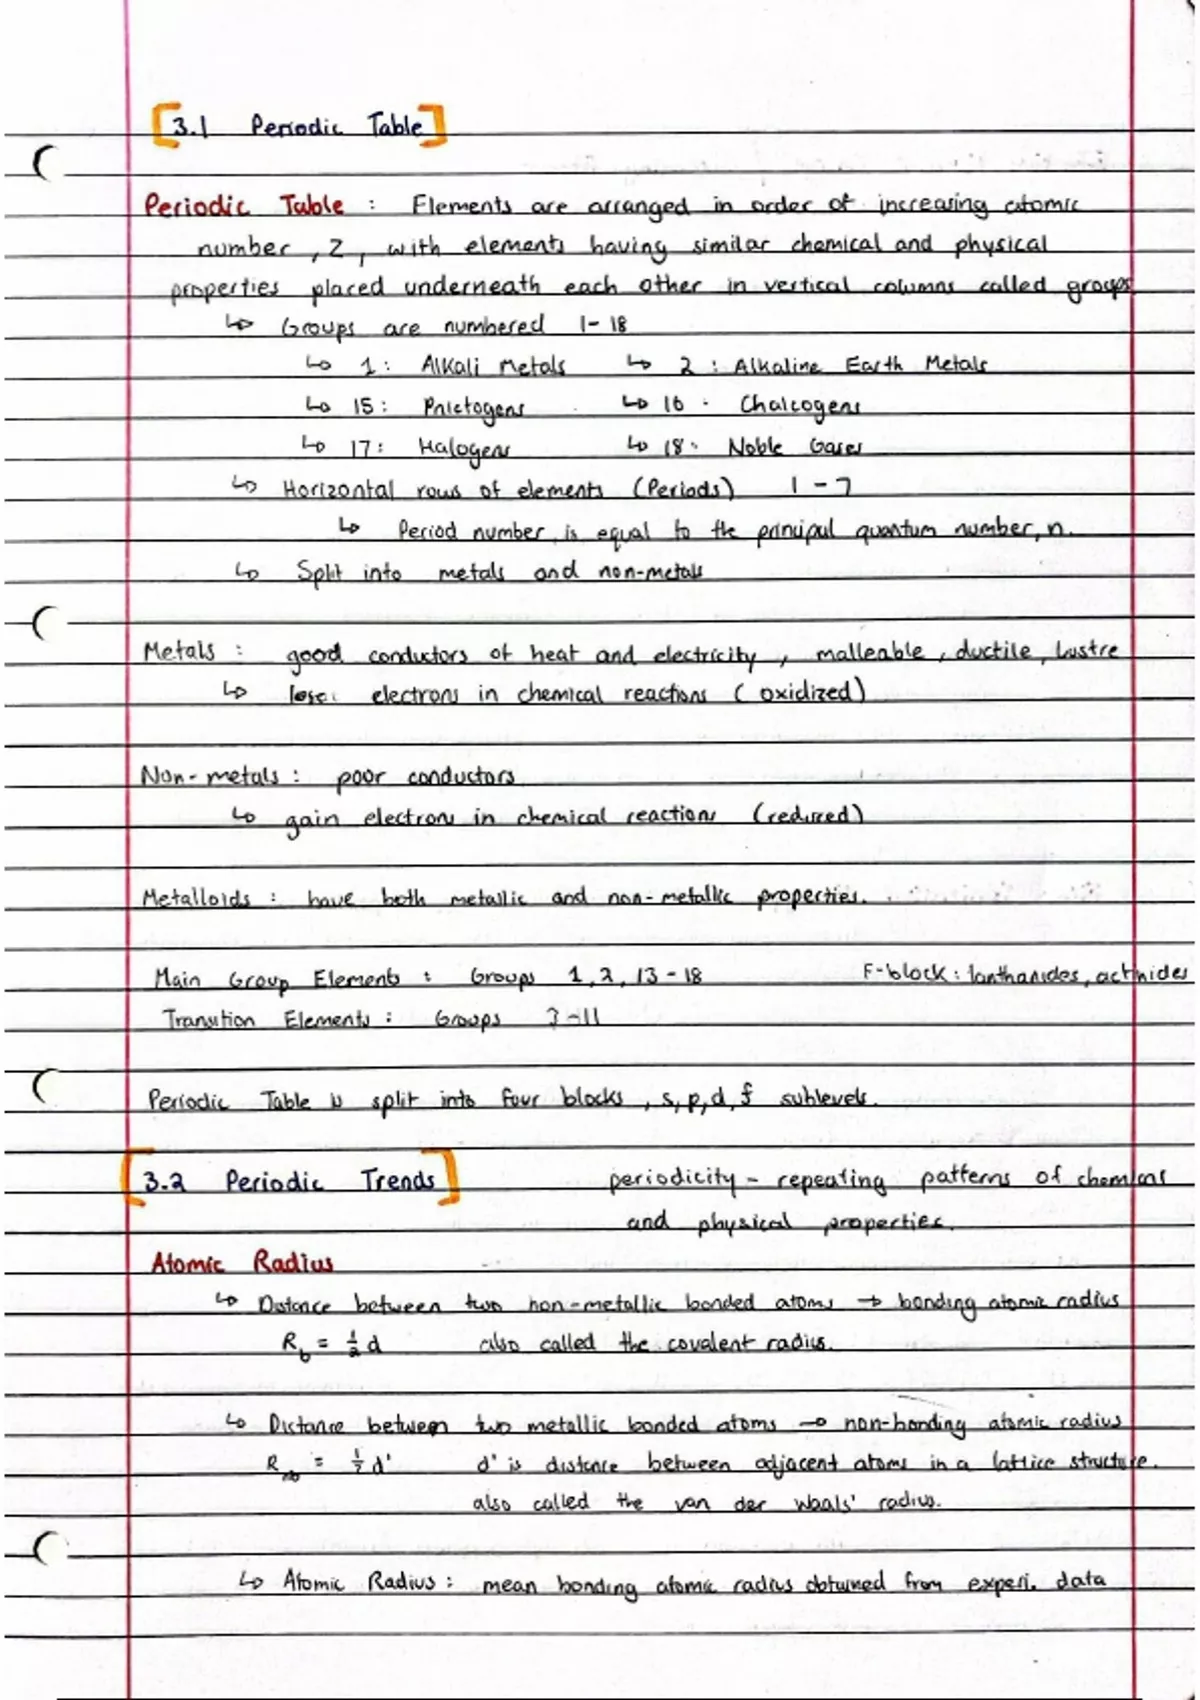 [3.1 Periodic Table]
Periodic Table : Elements are arranged in order of increasing atomic
number, Z, with elements having similar chemical and physical
properties placed underneath each other in vertical columns called groups
↳ Groups are numbered 1-18
↳ 1: Alkali Metals ↳ 2: Alkaline Earth Metals
↳ 15: Pnictogens ↳ 16: Chalcogens
↳ 17: Halogens ↳ 18: Noble Gases
↳ Horizontal rows of elements (Periods) 1-7
↳ Period number is equal to the principal quantum number, n.
↳ Split into metals and non-metals
Metals : good conductors of heat and electricity, malleable, ductile, lustre
↳ lose electrons in chemical reactions (oxidized)
Non-metals : poor conductors
↳ gain electrons in chemical reactions (reduced)
Metalloids : have both metallic and non-metallic properties.
Main Group Elements : Groups 1, 2, 13-18 F-block: lanthanides, actinides
Transition Elements : Groups 3-11
Periodic Table is split into four blocks, s, p, d, f sublevels.
[3.2 Periodic Trends] periodicity - repeating patterns of chemical
and physical properties.
Atomic Radius
↳ Distance between two non-metallic bonded atoms → bonding atomic radius
R_b = ½ d also called the covalent radius.
↳ Distance between two metallic bonded atoms → non-bonding atomic radius
R_nb = ½ d' d' is distance between adjacent atoms in a lattice structure.
also called the van der Waals' radius.
↳ Atomic Radius : mean bonding atomic radius obtained from experi. data